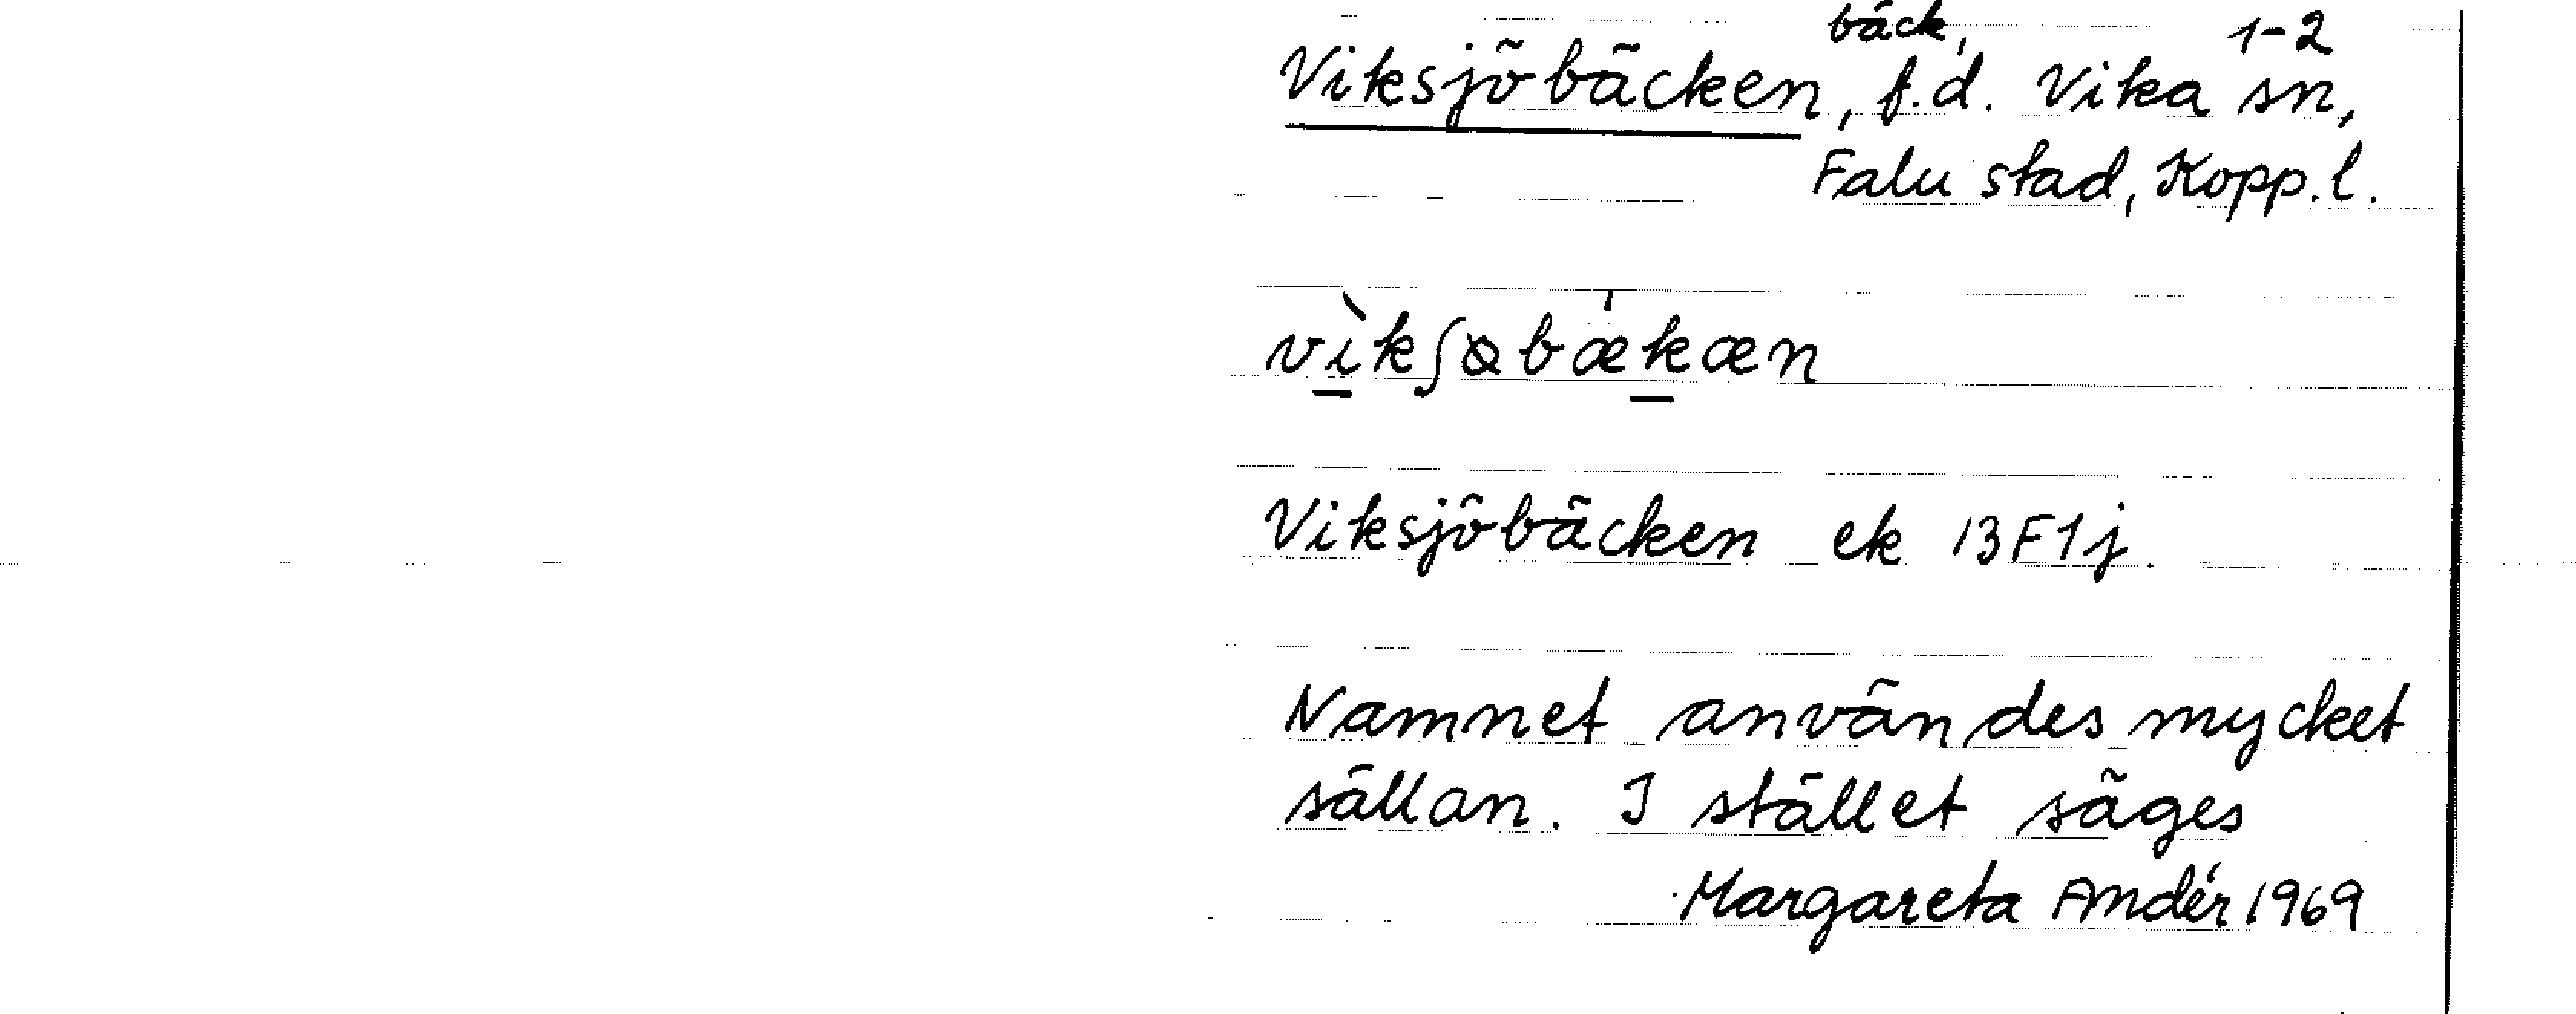 bäck, 1-2
Viksjöbäcken, f.d. Vika sn,
Falu stad, Kopp.l.
vìkʃɞbækæn
Viksjöbäcken ek 13F1j.
Namnet användes mycket
sällan. I stället säges
Margareta Andér 1969